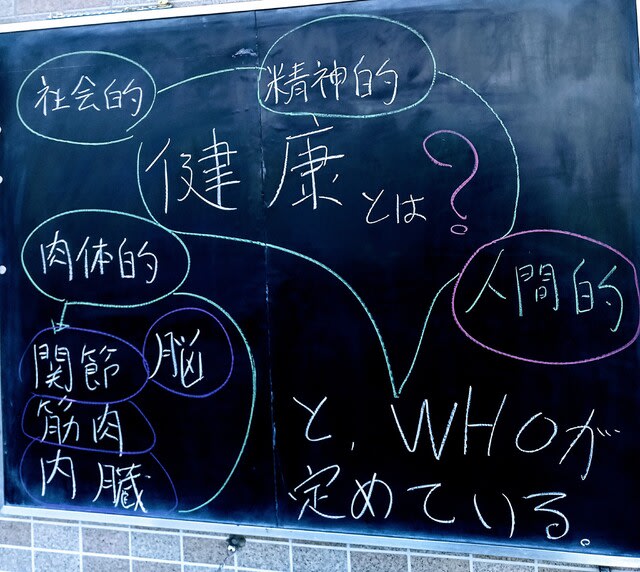 社会的
精神的
健康とは?
肉体的
人間的
関節
脳
筋肉
内臓
と、WHOが
定めている。